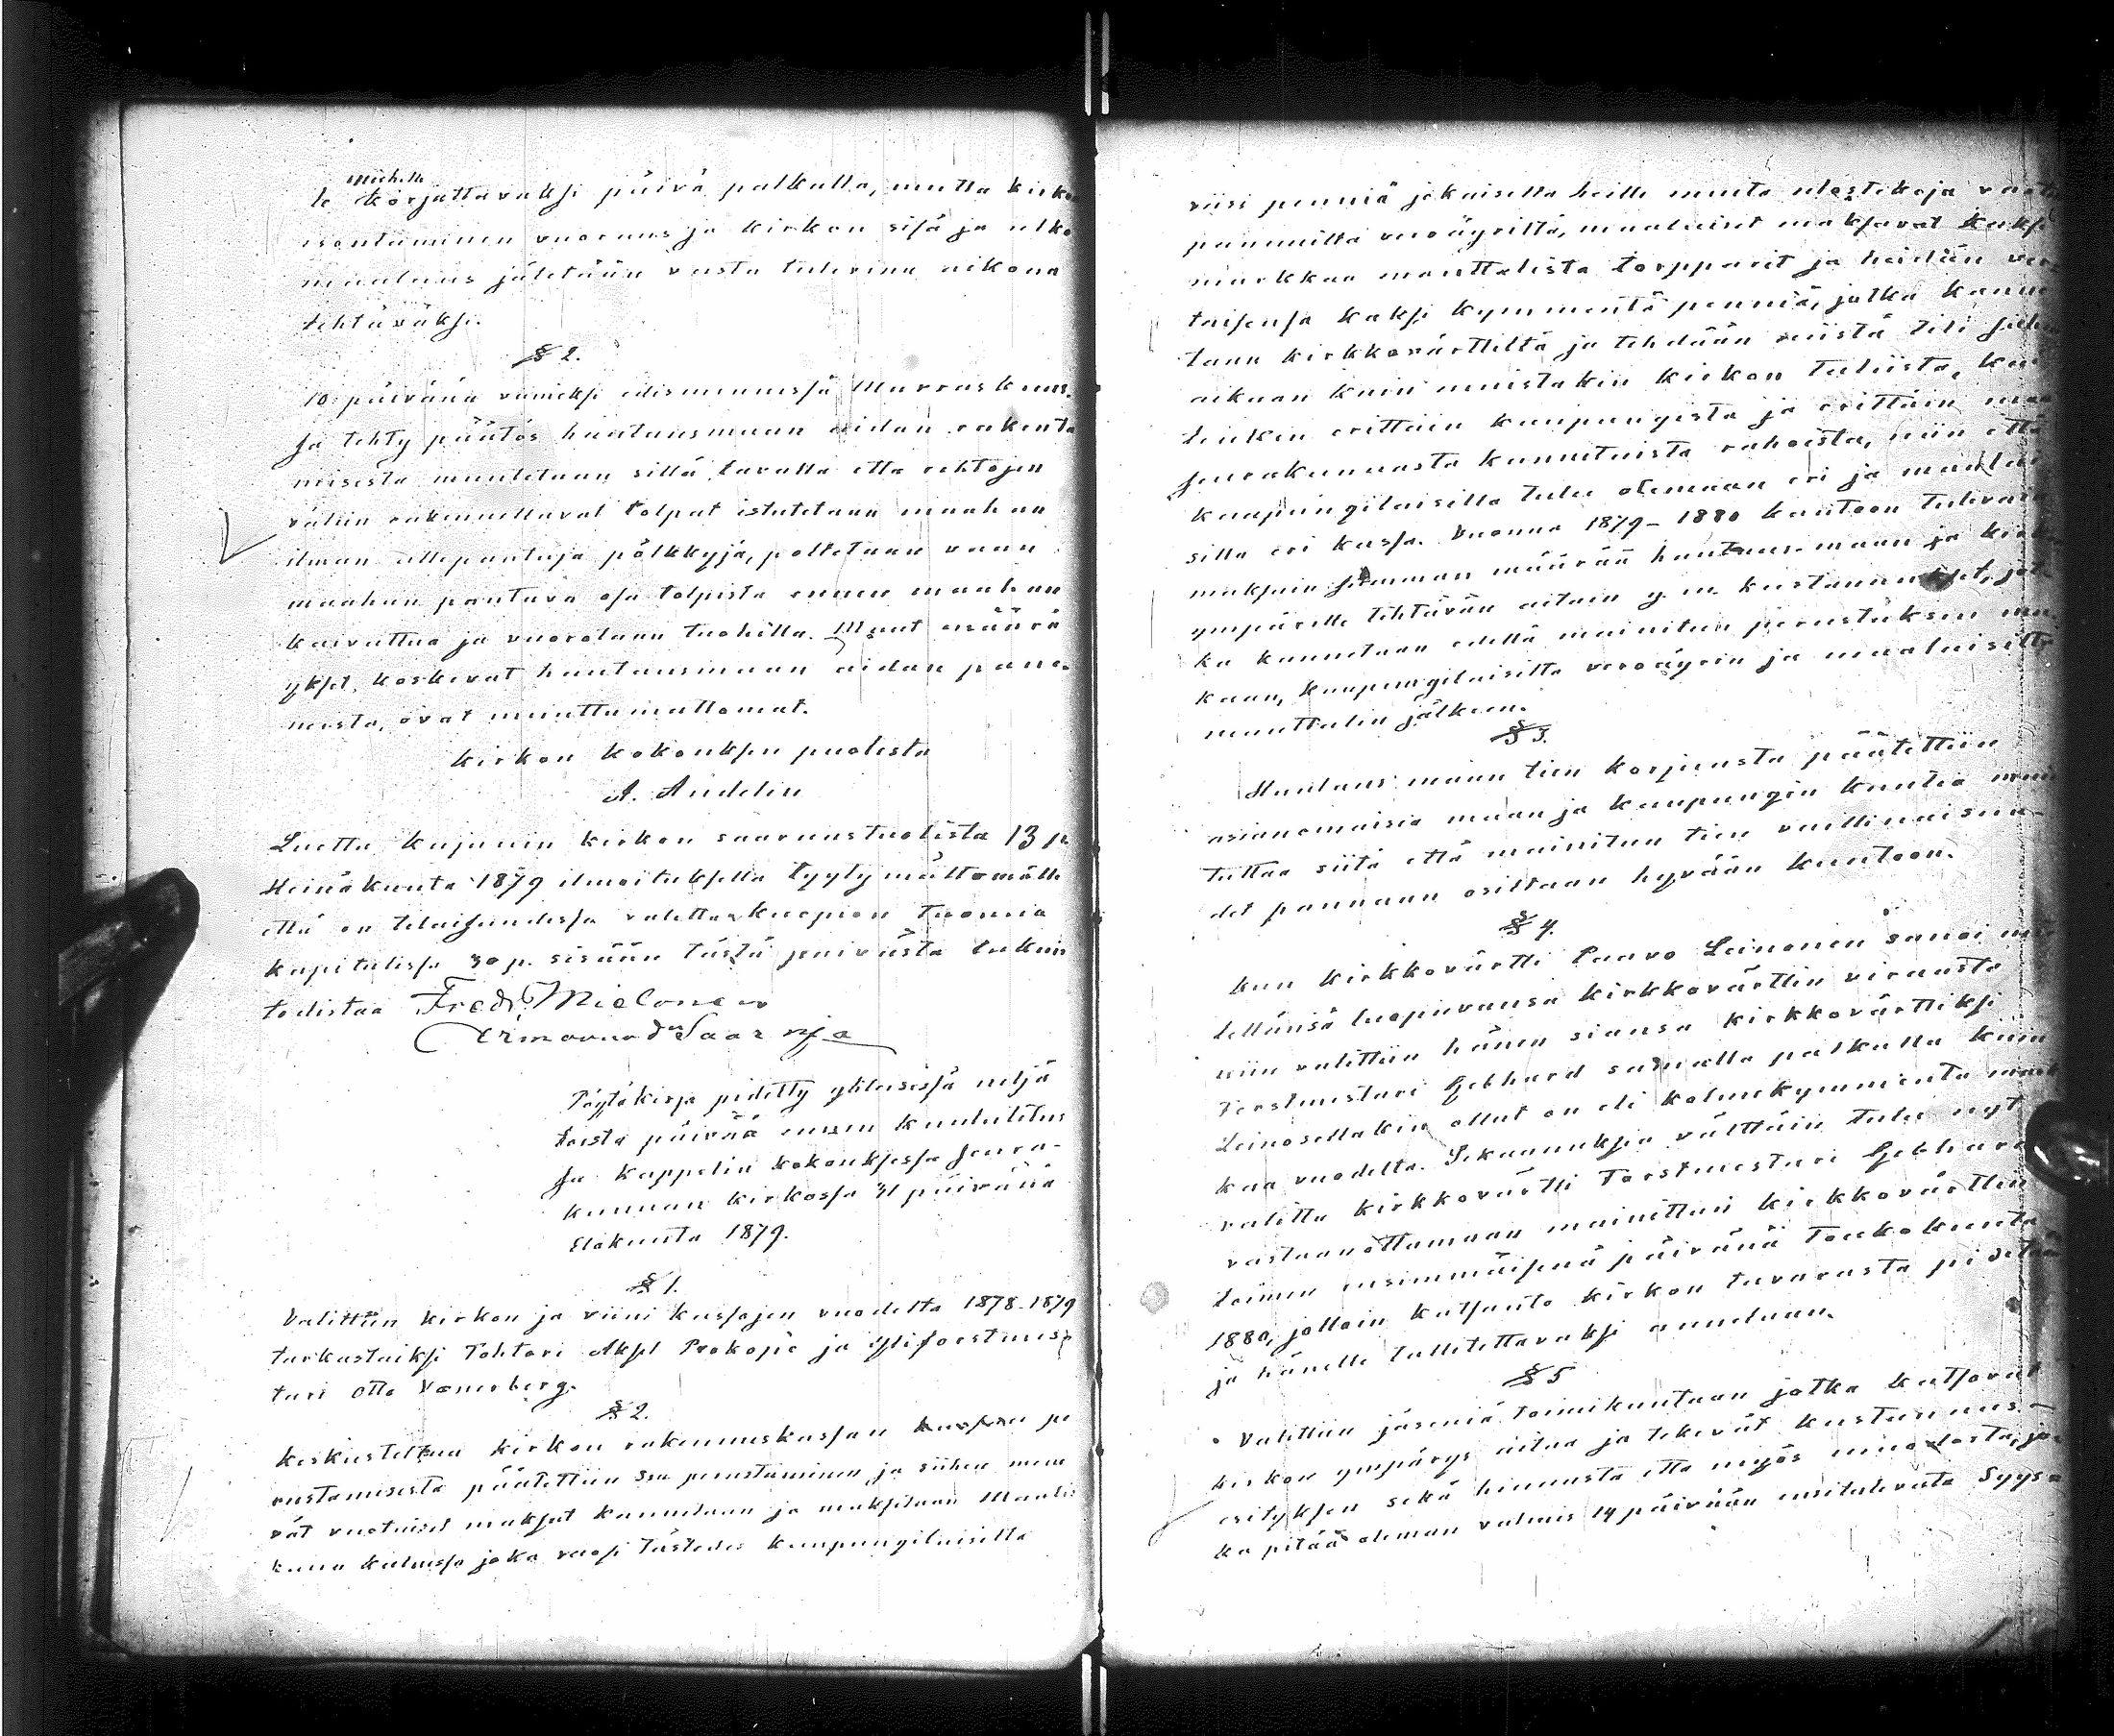 miehelle
le korjattavaksi päivä palkalla, mutta kirkon
isontaminen vuoraus ja kirkon sisä ja ulko
maalaus jätetään vasta tulevina aikoina
tehtäväksi.
§ 2.
10 päivänä viimeksi edismenneessä Marraskuus-
sa tehty päätös hautausmaan aidan rakenta
misesta muutetaan sillä tavalla että rehtojen
väliin rakennettavat tolpat istutetaan maahan
ilman allepantuja pölkkyjä, poltetaan vaan
maahan pantava osa tolpista ennen maahan
kaivattua ja vuorataan tuohilla. Muut määrä
ykset, koskevat hautausmaan aidan pane-
mista, ovat muuttumattomat.
Kirkon kokouksen puolesta
A. Andelin
Luettu Kajanin kirkon saarnastuolista 13 p.
Heinäkuuta 1879 ilmoituksella tyytymättömälle
että on tilaisuudessa valittaa Kuopion Tuomio
kapitulissa 30 p. sisään tästä päivästä lukein
todistaa Fredr. Mielonen
Hermannd Saarnja
Pöytäkirja pidetty yhteisessä neljä
toista päivää ennen kuulutetus
sa kappelin kokouksessa seura-
kunnan kirkossa 31 päivänä
Elokuuta 1879.
§ 1.
Valittiin kirkon ja viini kassojen vuodelta 1878-1879
tarkastaiksi Tohtori Aksel Prokopé ja yliforstmes-
tari Otto Vænerberg.
§ 2.
Keskusteltua kirkon rakennuskassan kassan pe
rustamisesta päätettiin sen perustaminen ja siihen mene
vät vuotuiset maksut kannetaan ja maksetaan Maalis
kuun kuluessa joka vuosi tästedes kaupungilaisilta
viisi penniä jokaiselta heille muita ulosteköja varten
pannuilta veroäyriltä, maalaiset maksavat kaksi
markkaa manttalista torpparit ja heidän ver-
taisensa kaksi kymmentä penniä, jotka kanne
taan kirkkovärttiltä ja tehdään niistä tili samaan
aikaan kuin muistakin kirkon tuloista, kui
tenkin erittäin kaupungista ja erittäin maa
seurakunnasta kannetuista rahoista, niin että
kaupungilaisilla tulee olemaan eri ja maalai
silla eri kassa. Vuonna 1879-1880 kantoon tulevain
maksuin summan määrää hautaus-maan ja kirkon
ympärille tehtävän aitain y. m. kustannukset, jot-
ka kannetaan edellä mainitun perustuksen mu
kaan, kaupungilaisilta veroäyrin ja maalaisilta
manttalin jälkeen.
§ 3.
Hautaus maan tien korjuusta päätettiin
asianomaisia maan ja kaupungin kuntia muis
tuttaa siitä että mainitun tien vaillinaisuu-
det pannaan osiltaan hyvään kuntoon.
§ 4.
Kun kirkkovärtti Paavo Leinonen sanoi mie
lellänsä luopuvansa kirkkovärttin virausta
niin valittiin hänen siansa kirkkovärttiksi
Forstmestari Gebhard samalla palkalla kuin
Leinosellakin ollut on eli kolmekymmentä mark
kaa vuodelta. Sekaannuksia välttäin tulee nyt
valittu kirkkovärtti Forstmestari Gebhard
vastaanottamaan mainittun kirkkovärttin
toimen ensimmäisenä päivänä Toukokuuta
1880, jolloin katsanto kirkon tavarasta pidetään
ja hänelle tallitettavaksi annetaan.
§ 5
Valittiin jäseniä toimikuntaan jotka katsovat
kirkon ympärys aitaa ja tekevät kustannus-
esityksen sekä hinnasta että myös muodosta, jon-
ka pitää oleman valmis 14 päivään ensitulevata Syys-